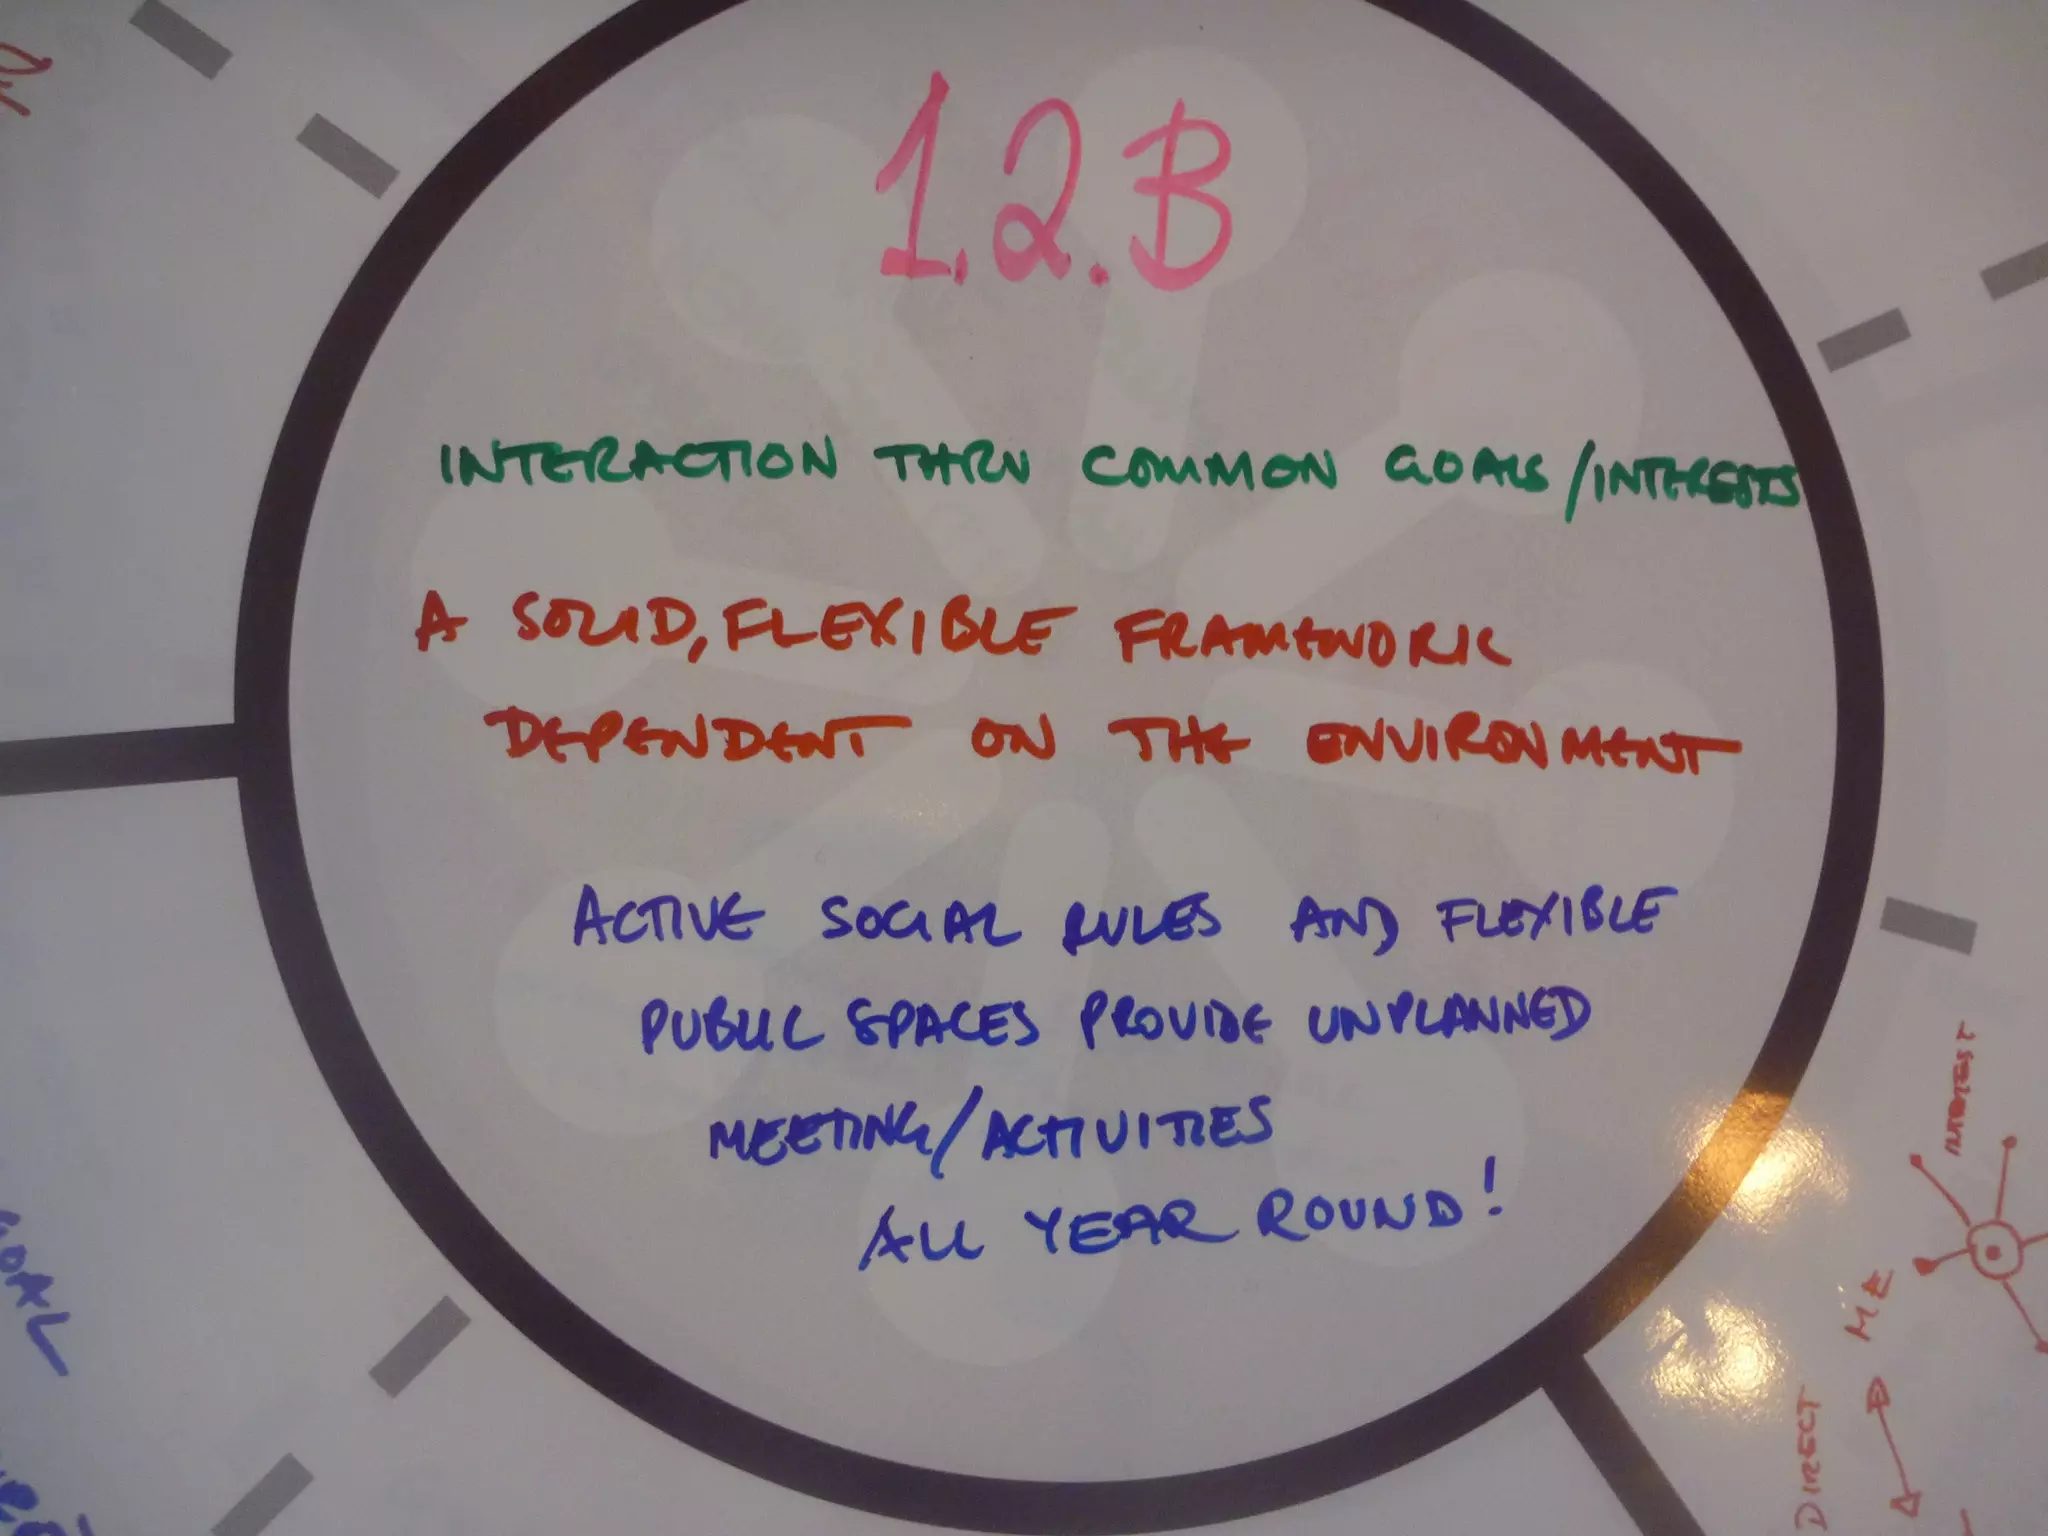 1.2.B
INTERACTION THRU COMMON GOALS/INTERESTS
A SOLID, FLEXIBLE FRAMEWORK
DEPENDENT ON THE ENVIRONMENT
ACTIVE SOCIAL RULES AND FLEXIBLE
PUBLIC SPACES PROVIDE UNPLANNED
MEETING/ACTIVITIES
ALL YEAR ROUND!
INTEREST
ME
DIRECT
GOAL